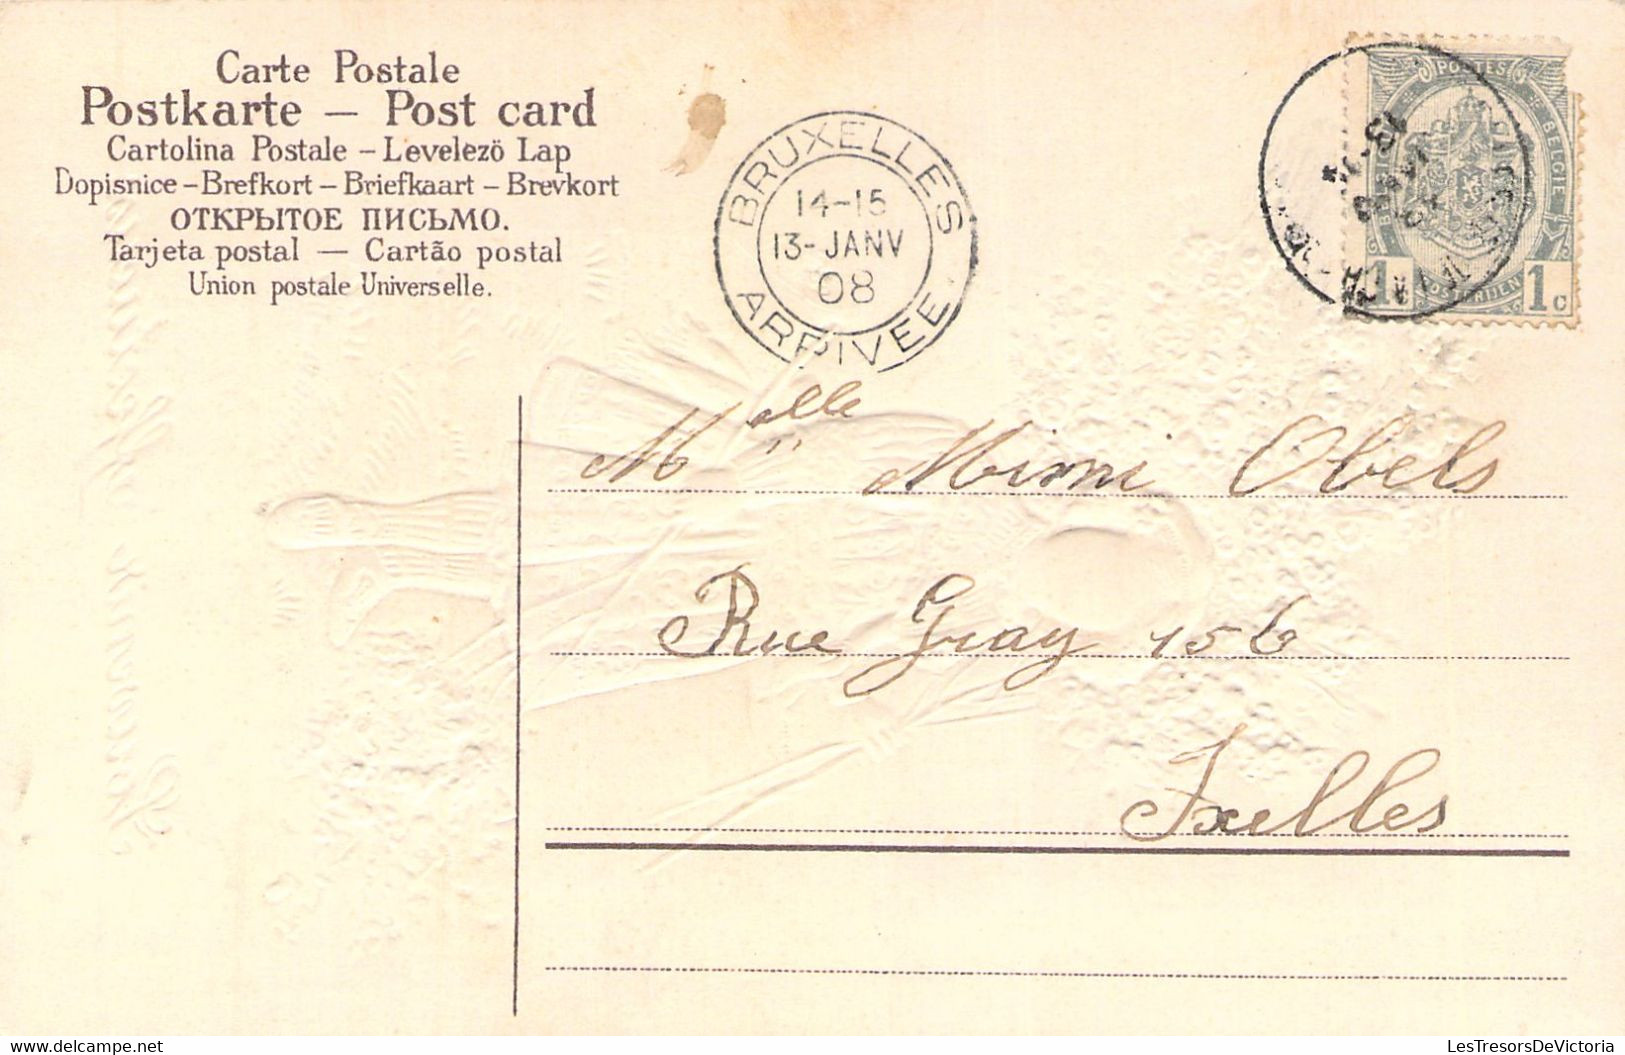 Carte Postale
Postkarte – Post card
Cartolina Postale – Levelezö Lap
Dopisnice – Brefkort – Briefkaart – Brevkort
ОТКРЫТОЕ ПИСЬМО.
Tarjeta postal — Cartão postal
Union postale Universelle.
BRUXELLES
14-15
13-JANV
08
ARRIVEE
POSTES
BELGIE
1c
Mlle Mimi Obels
Rue Gray 156
Ixelles
delcampe.net
LesTresorsDeVictoria